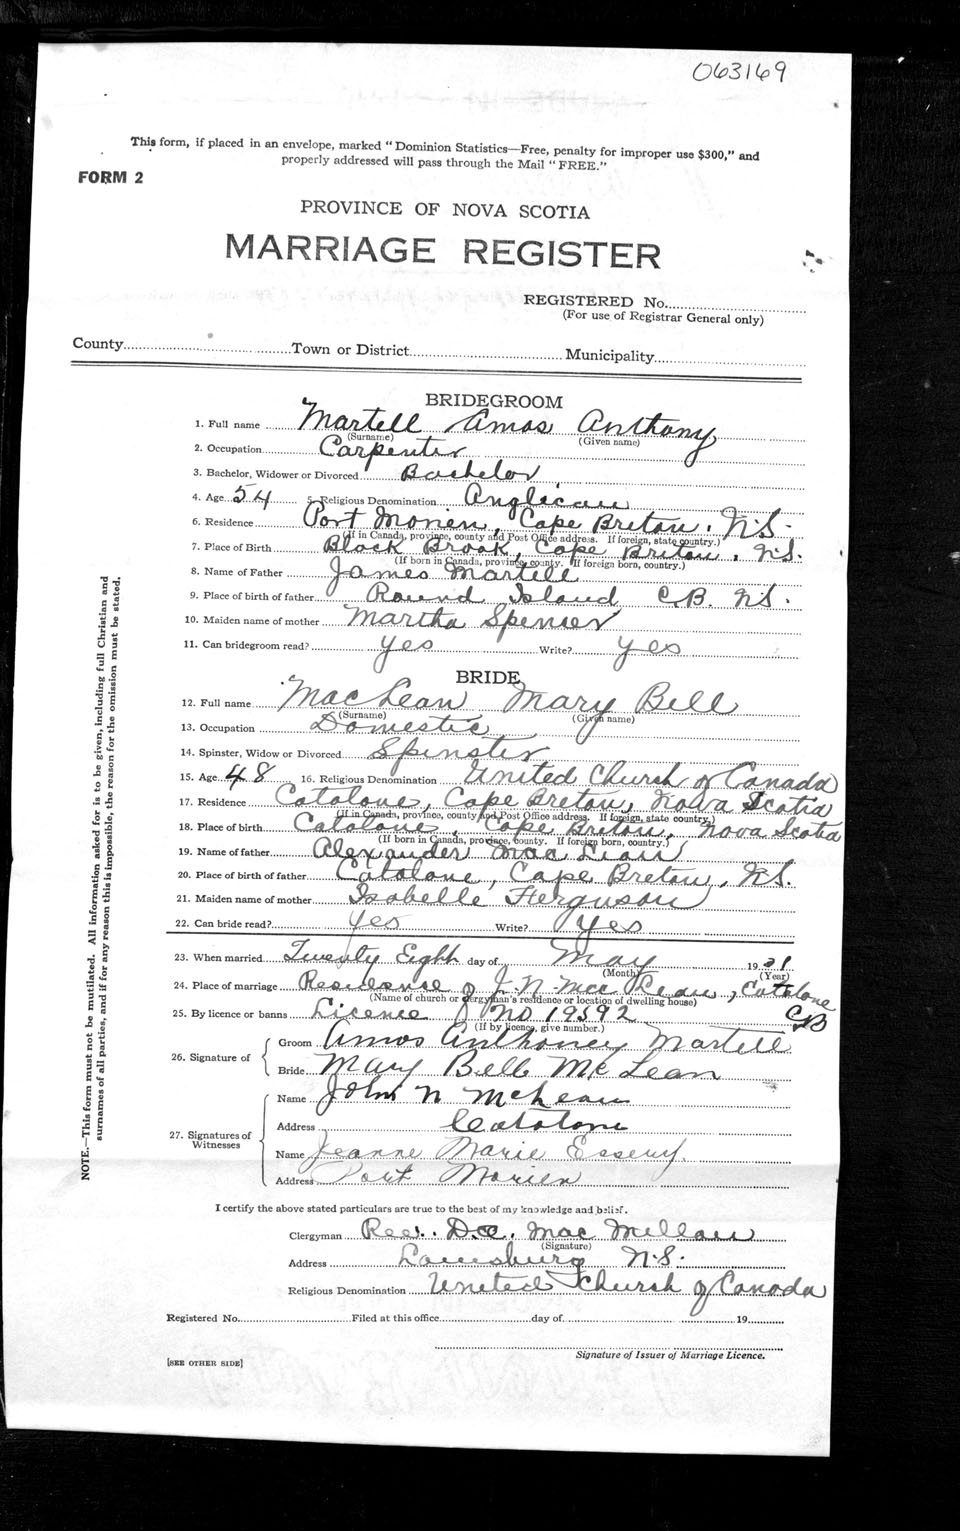 063169
This form, if placed in an envelope, marked "Dominion Statistics—Free, penalty for improper use $300," and
properly addressed will pass through the Mail "FREE."
FORM 2
PROVINCE OF NOVA SCOTIA
MARRIAGE REGISTER
REGISTERED No.
(For use of Registrar General only)
County Town or District Municipality
BRIDEGROOM
1. Full name Martell Amos Anthony
(Surname) (Given name)
2. Occupation Carpenter
3. Bachelor, Widower or Divorced Bachelor
4. Age 54 5. Religious Denomination Anglican
6. Residence Port Morien, Cape Breton, N.S.
(If in Canada, province, county and Post Office address. If foreign, state country.)
7. Place of Birth Black Brook, Cape Breton, N.S.
(If born in Canada, province, county. If foreign born, country.)
8. Name of Father James Martell
9. Place of birth of father Round Island C.B. N.S.
10. Maiden name of mother Martha Spencer
11. Can bridegroom read? yes Write? yes
BRIDE
12. Full name MacLean Mary Bell
(Surname) (Given name)
13. Occupation Domestic
14. Spinster, Widow or Divorced Spinster
15. Age 48 16. Religious Denomination United Church of Canada
17. Residence Catalone, Cape Breton, Nova Scotia
(If in Canada, province, county and Post Office address. If foreign, state country.)
18. Place of birth Catalone, Cape Breton, Nova Scotia
(If born in Canada, province, county. If foreign born, country.)
19. Name of father Alexander MacLean
20. Place of birth of father Catalone, Cape Breton, N.S.
21. Maiden name of mother Isabelle Ferguson
22. Can bride read? yes Write? yes
23. When married Twenty Eighth day of May 1931
(Month) (Year)
24. Place of marriage Residence of J. N. MacLean, Catalone
(Name of church or clergyman's residence or location of dwelling house)
CB
25. By licence or banns Licence No 19592
(If by licence, give number.)
26. Signature of
Groom Amos Anthoney Martell
Bride Mary Bell McLean
27. Signatures of Witnesses
Name John N McLean
Address Catalone
Name Jeanne Marie Essery
Address Port Morien
I certify the above stated particulars are true to the best of my knowledge and belief.
Clergyman Rev. D. MacMillan
(Signature)
Address Louisburg N.S.
Religious Denomination United Church of Canada
Registered No. Filed at this office day of 19
Signature of Issuer of Marriage Licence.
[SEE OTHER SIDE]
NOTE.—This form must not be mutilated. All information asked for is to be given, including full Christian and
surnames of all parties, and if for any reason this is impossible, the reason for the omission must be stated.